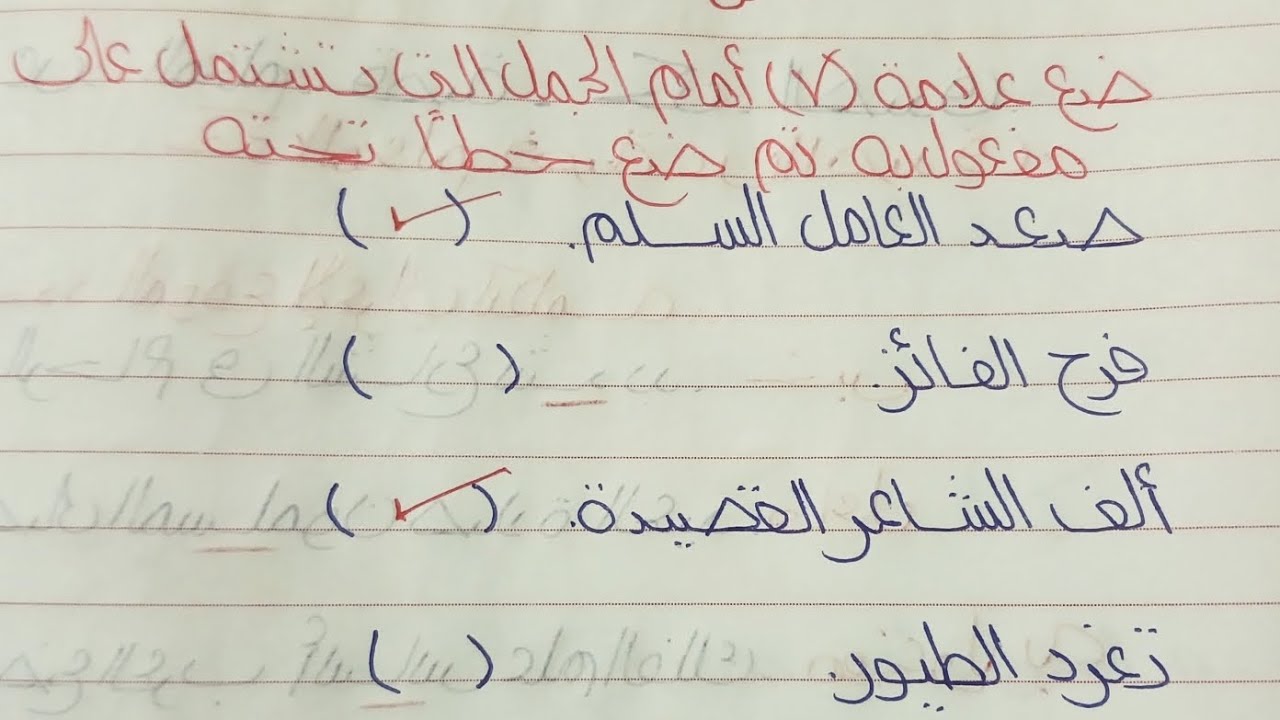 ضع علامة (√) أمام الجمل التي تشتمل على
مفعول به ثم ضع خطًا تحته
صعد العامل السلم. (✓)
فرح الفائز. ( )
ألف الشاعر القصيدة. (✓)
تغرد الطيور. ( )